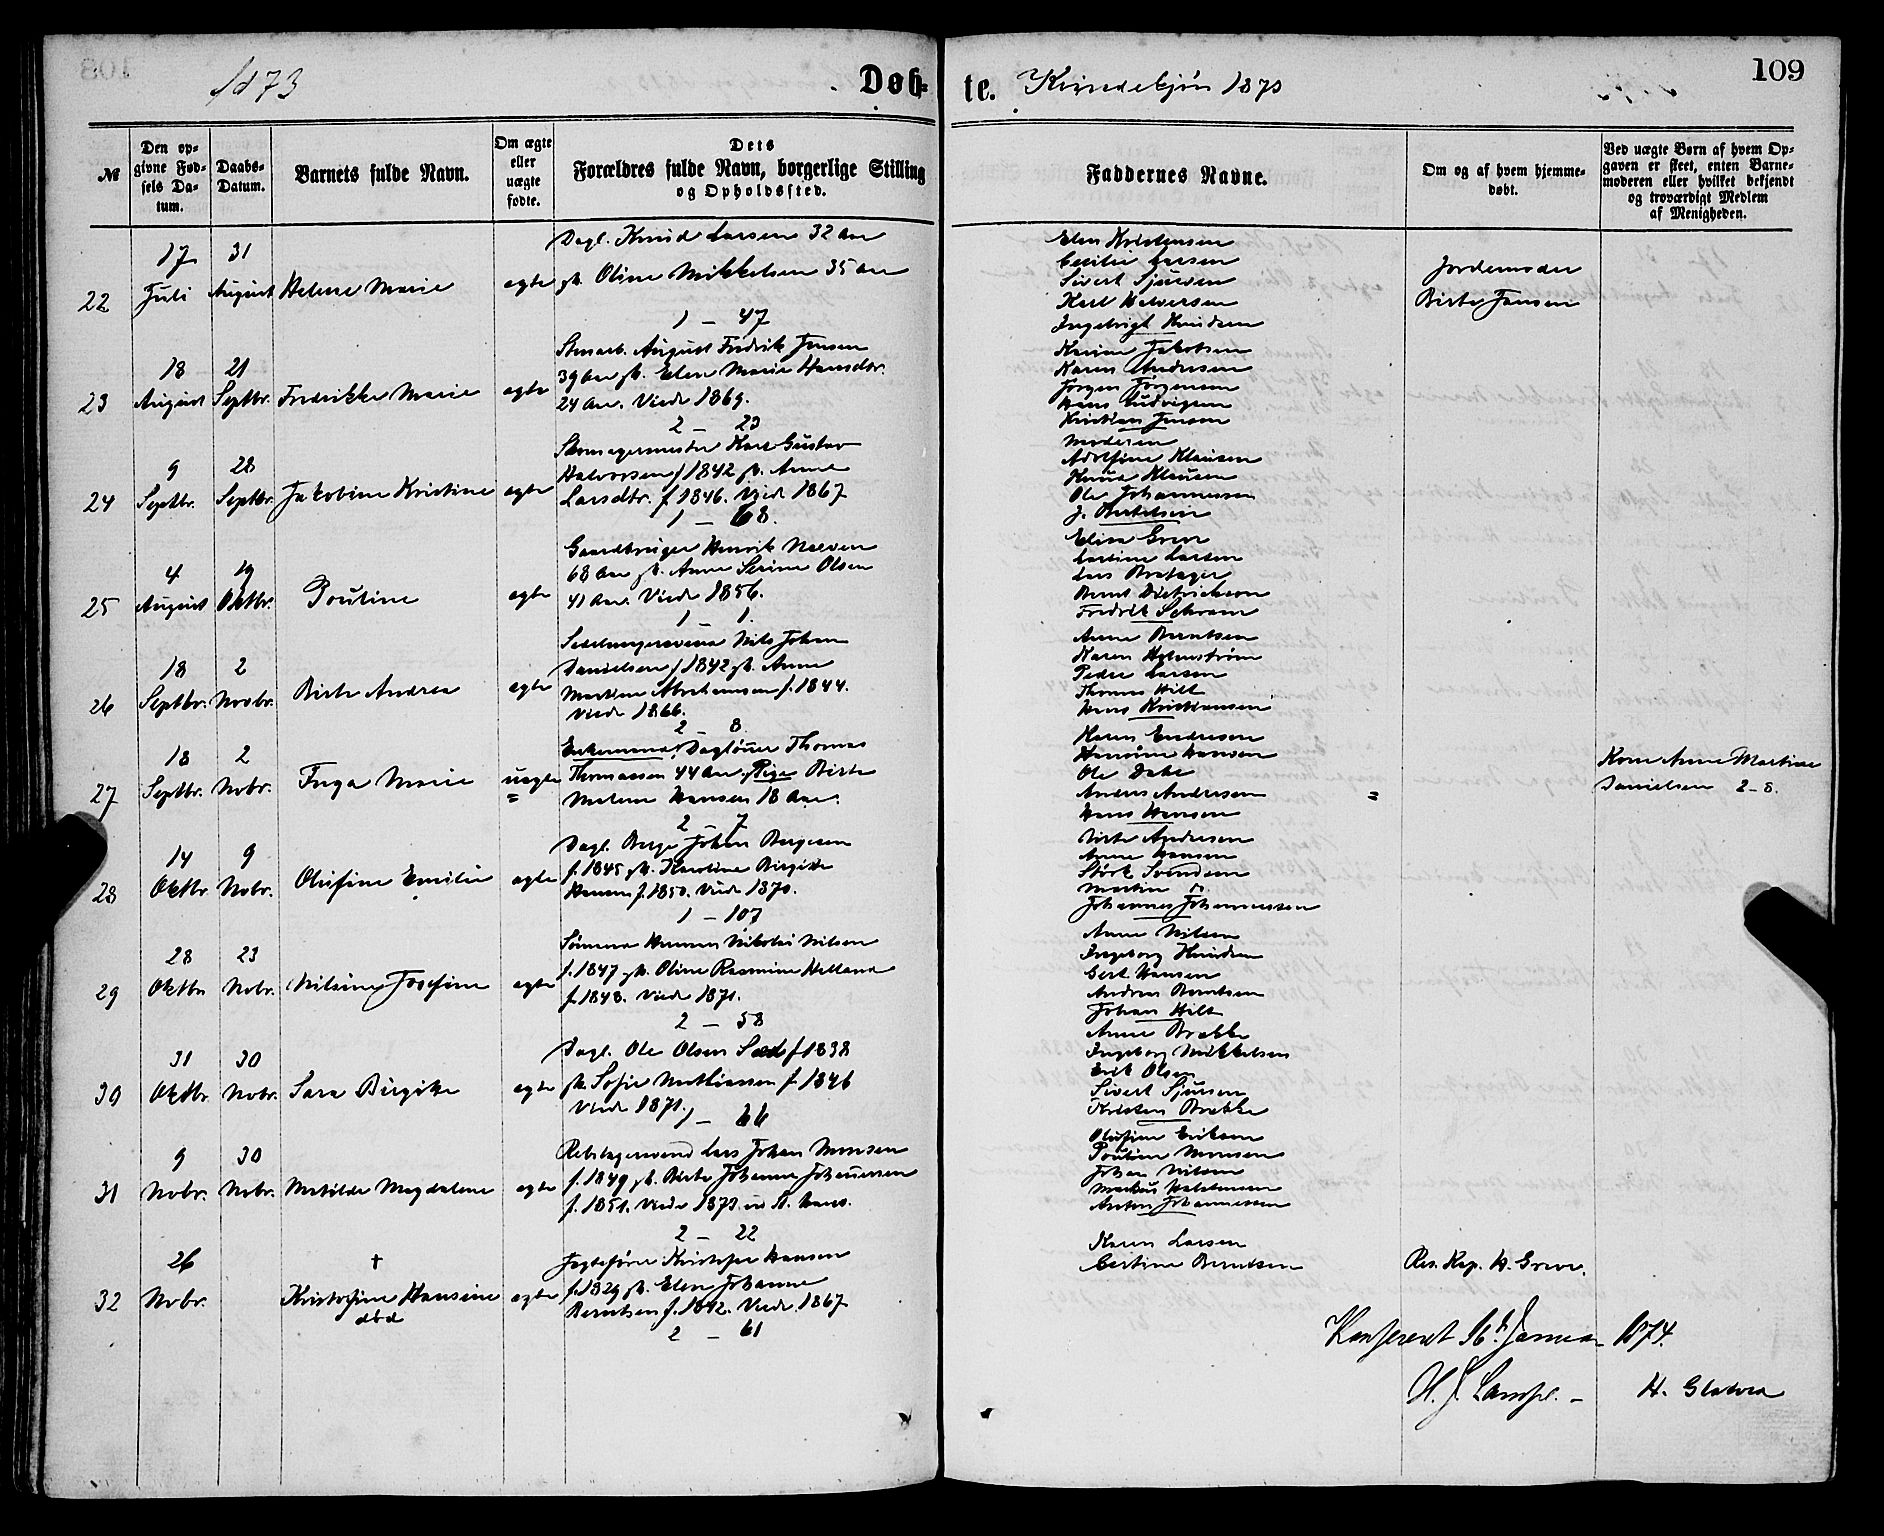 1873 Døb- te. Kvindekjøn 1873 109
№
Den opgivne Fødsels Datum.
Daabs-Datum.
Barnets fulde Navn.
Om ægte eller uægte fødte.
Dets Forældres fulde Navn, borgerlige Stilling og Opholdssted.
Faddernes Navne.
Om og af hvem hjemmedøbt.
Ved uægte Børn af hvem Opgaven er skeet, enten Barnemoderen eller hvilket bekjendt og troværdigt Medlem af Menigheden.
22
17 Juli
31 August
Helene Marie
egte
Dagl. Knud Larsen 32 Aar
gk. Oline Mikkelsen 35 Aar
1 - 47
Elen Kristensen
Cecilie Larsen
Sivert Sjursen
Karl Halversen
Ingebrigt Knudsen
Jordemoder
Birte Jansen
23
18 August
21 Septbr.
Fredrikke Marie
egte
August Fredrik Jensen
39 Aar gk. Elen Marie Hansdtr.
24 Aar. Viede 1869.
2 - 23
Karine Jakobsen
Karen Andersen
Jørgen Jørgensen
Hans Ludvigsen
Kristian Jensen
24
9 Septbr.
28 Septbr.
Jakobine Kristine
egte
Skomagermester Karl Gustav
Halvorsen f 1842 gk. Anne
Larsdtr. f 1846. Viede 1867
1 - 68.
Moderen
Adolfine Klausen
Klausen
Ole Johannessen
J. Bertelsen
25
4 August
19 Oktbr.
Poutine
egte
Gaardbruger Henrik
68 Aar gk. Anne Serine Olsen
41 Aar. Viede 1856.
1 - 1.
Elisa Greve
Larsen
Lars
Bernt Diedrichsen
Fredrik Schram
26
18 Septbr.
2 Novbr.
Birte Andrea
egte
Sadelmagersvend Nils Johan
Danielsen f 1842 gk. Anne
Martine Abrahamsen f. 1844.
Viede 1866.
2 - 8
Anne Berntsen
Karen Holmstrøm
Peder Larsen
Thomas Hilt
Hans Kristiansen
27
18 Septbr.
2 Nobr.
Inga Marie
uegte
=
Enkemand, Dagløner Thomas
Thomassen 44 Aar. Pige Birte
Malene Hansen 18 Aar.
2 - 7
Karen Endresen
Hansen
Ole Dahl
Anders Andersen
Hans Hansen
=
Kone Anne Martine
Danielsen 2-8.
28
14 Oktbr
9 Nobr.
Olufine Emilie
egte
Dagl. Børge Johan Børgesen
f. 1845 gk. Karoline Birgitte
Hansen f. 1850. Viede 1870.
1 - 107
Birte Andersen
Anne Hansen
Størk Svendsen
Martin Do
Johannes Johannessen
29
28 Oktbr
23 Nobr.
Nilsine Josefine
egte
Sømand Herman Nikolai Nilsen
f. 1847 gk. Oline Rasmine Helland
f. 1848. Viede 1871.
2 - 58
Anne Nilsen
Ingeborg Knudsen
Gert Hansen
Andreas Berntsen
Johan Hilt
30
31 Oktbr
30 Nobr.
Sara Birgitte
egte
Dagl. Ole Olsen Sæd f 1838
gk. Sofie Mathiassen f 1846
Viede 1871.
1 - 66
Anne Brække
Ingeborg Mikkelsen
Erik Olsen
Sivert Sjursen
Kristen Brække
31
9 Nobr.
30 Nobr.
Matilde Magdalene
egte
Rebslagersvend Lars Johan Monsen
f. 1849 gk. Birte Johanne Johannesen
f. 1851. Viede 1873 ved St. Hans.
2 - 22
Olufine Eriksen
Poutine Monsen
Johan Nilsen
Markus Halstensen
Anton Johannessen
32
26 Nobr.
†
Kristofine Hansine
død
egte
Jagtefører Kristofer Hansen
f. 1829 gk. Elen Johanne
Berntsen f. 1842. Viede 1867
2 - 61
Karen Larsen
Bertine Berntsen
Res. Kap. H. Greve.
Konfereret 16d Januar 1874.